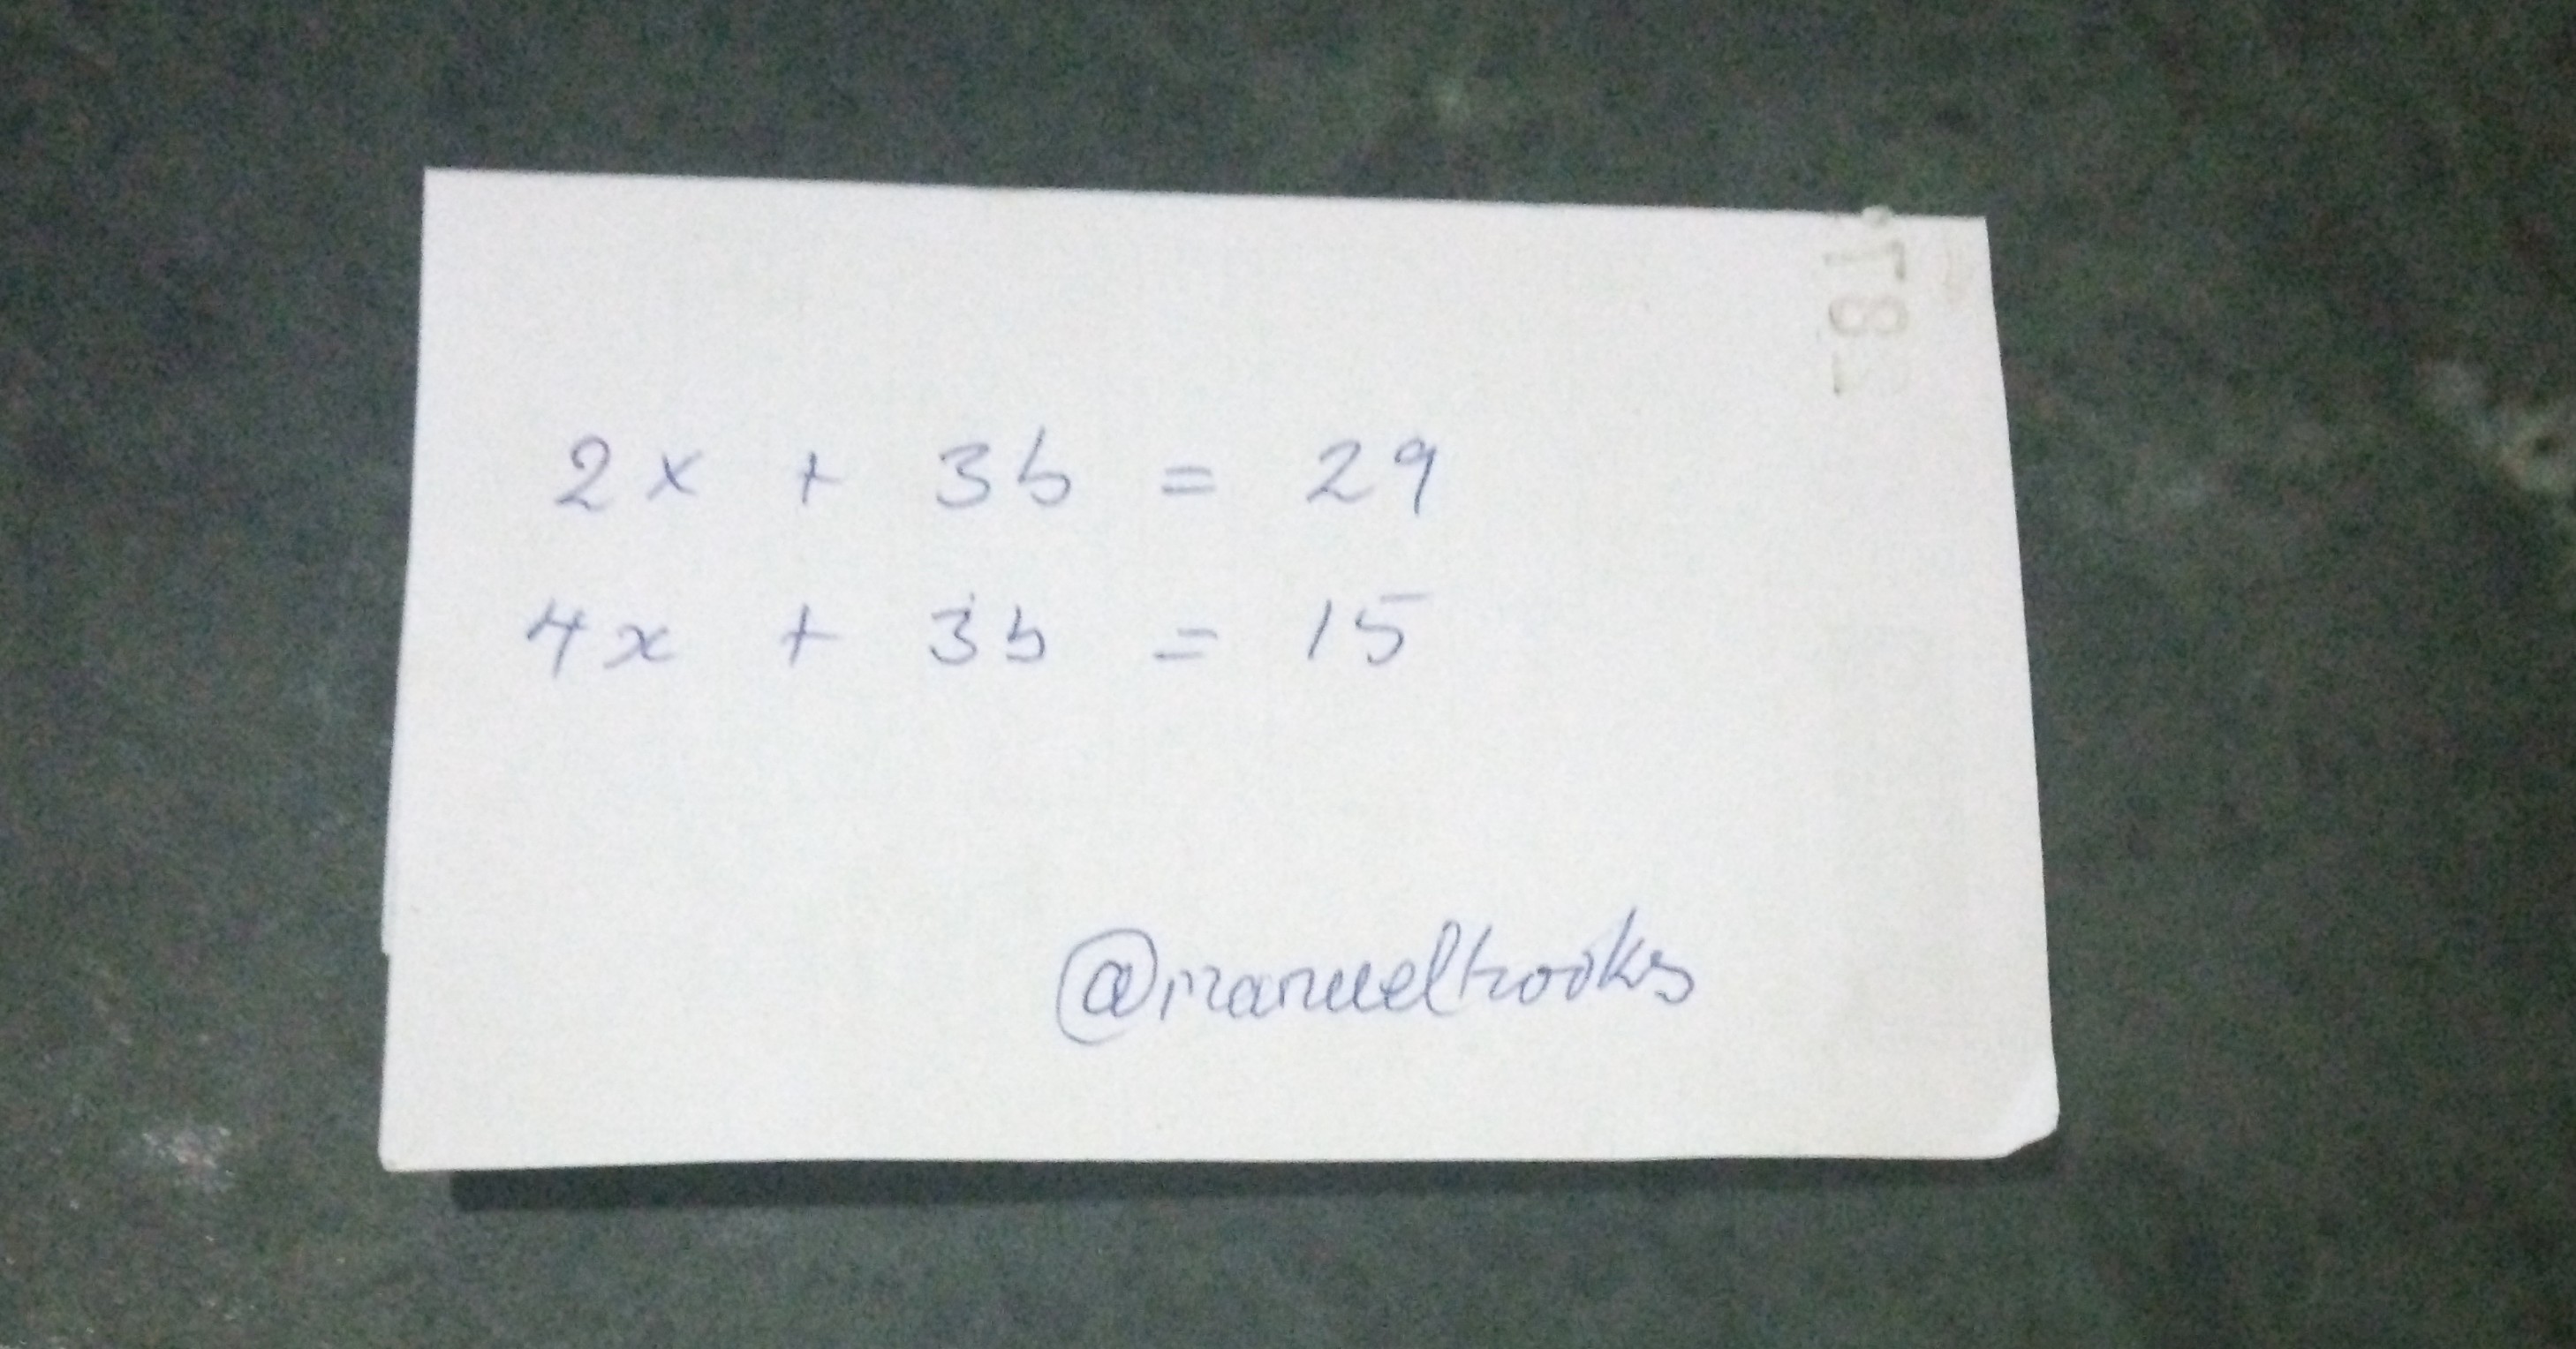 2x + 3b = 29
4x + 3b = 15
@manueltrooks